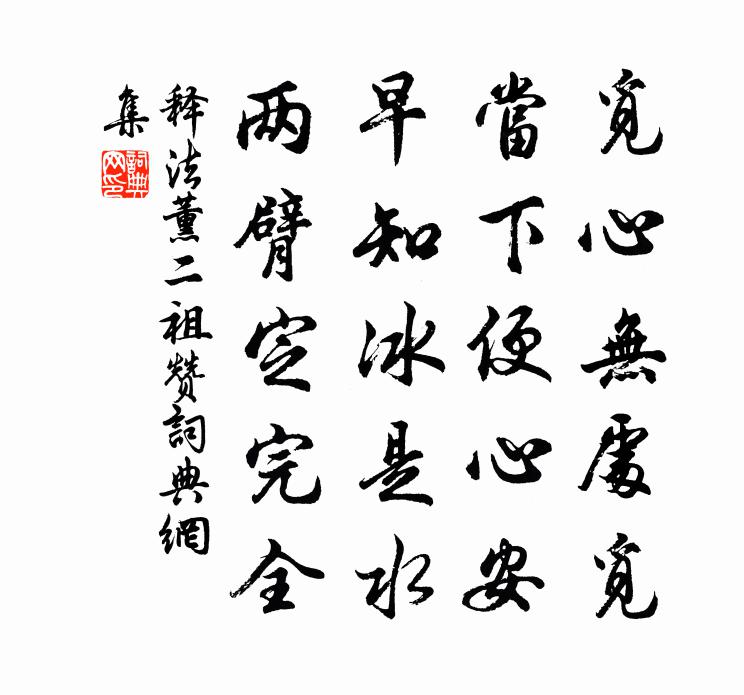 覓心無處覓
當下便心安
早知冰是水
两臂定完全
释法薰二祖赞詞典網
集
詞典
网印